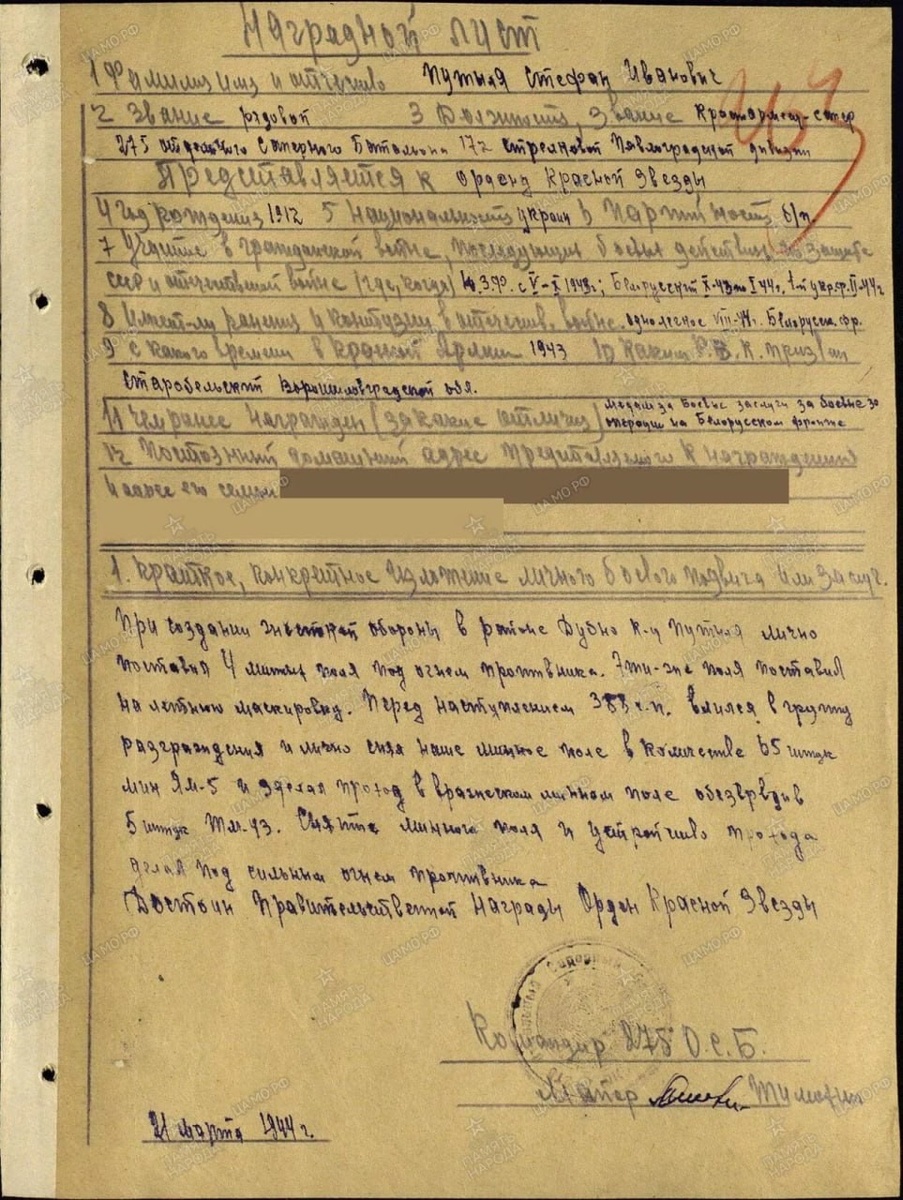 Наградной лист
1 Фамилия имя и отчество Путыля Стефан Иванович
2 Звание рядовой 3 Должность, звание Красноармеец-сапер
275 отдельного Саперного Батальона 172 Стрелковой Павлоградской дивизии
Представляется к Ордену Красной Звезды
4 Год рождения 1912 5 Национальность украин 6 Партийность б/п.
7 Участие в гражданской войне, последующих боевых действиях по защите
СССР и отечественной войне (где, когда) Ю.З.Ф. с V-X 1943г; Белорусский X-43 по I 44г. 1й укр.ф. II-44г
8 Имеет-ли ранения и контузии в отечествен. войне. однолегкое VIII-44г. Белорусск. фр.
9 с какого времени в красной Армии 1943 10 Каким Р.В.К. призван
Старобельский Ворошиловградской обл.
11 Чем ранее награжден (за какие отличия) медаль за боевые заслуги за боевые
операции на Белорусском фронте
12 Постоянный домашний адрес представляемого к награждению
и адрес его семьи
1. Краткое, конкретное изложение личного боевого подвига или заслуг.
При создании жесткой обороны в районе Дубно к-ц Путыля лично
поставил 4 минных поля под огнем противника. Эти-же поля поставил
на летнюю маскировку. Перед наступлением 388 с.п. влился в группу
разграждения и лично снял наше минное поле в количестве 65 штук
мин ЯМ-5 и зделал проход в вражеском минном поле обезвредив
5 штук ТМ-43. Снятие минного поля и устройство прохода
делал под сильным огнем противника
Достоин Правительственной Награды Орден Красной Звезды
Командир 275 О.С.Б.
Майор
21 марта 1944 г.
263
ЦАМО.РФ
ПАМЯТЬ НАРОДА